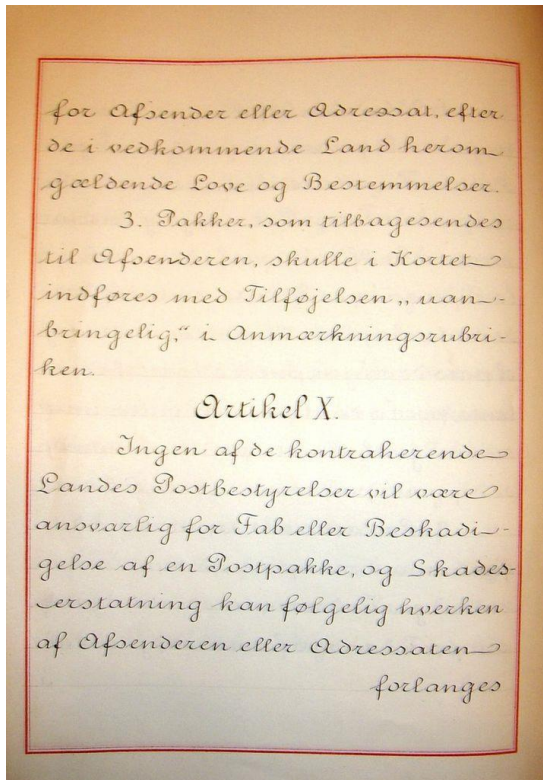 for Afsender eller Adressat, efter
de i vedkommende Land herom
gældende Love og Bestemmelser.
3. Pakker, som tilbagesendes
til Afsenderen, skulle i Kortet
indføres med Tilføjelsen „uan-
bringelig,“ i Anmærkningsrubri-
ken.
Artikel X.
Ingen af de kontraherende
Landes Postbestyrelser vil være
ansvarlig for Tab eller Beskadi-
gelse af en Postpakke, og Skades-
erstatning kan følgelig hverken
af Afsenderen eller Adressaten
forlanges